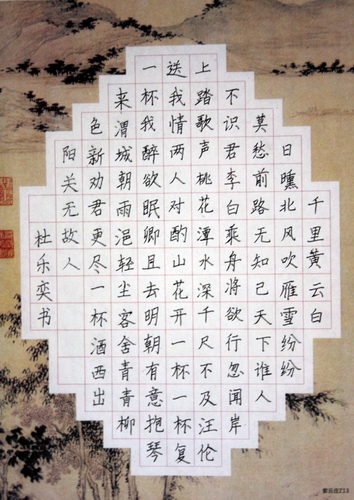 千里黄云白
日曛北风吹雁雪纷纷
莫愁前路无知己天下谁人
不识君李白乘舟将欲行忽闻岸
上踏歌声桃花潭水深千尺不及汪伦
送我情两人对酌山花开一杯一杯复
一杯我醉欲眠卿且去明朝有意抱琴
来渭城朝雨浥轻尘客舍青青柳
色新劝君更尽一杯酒西出
阳关无故人
杜乐奕书